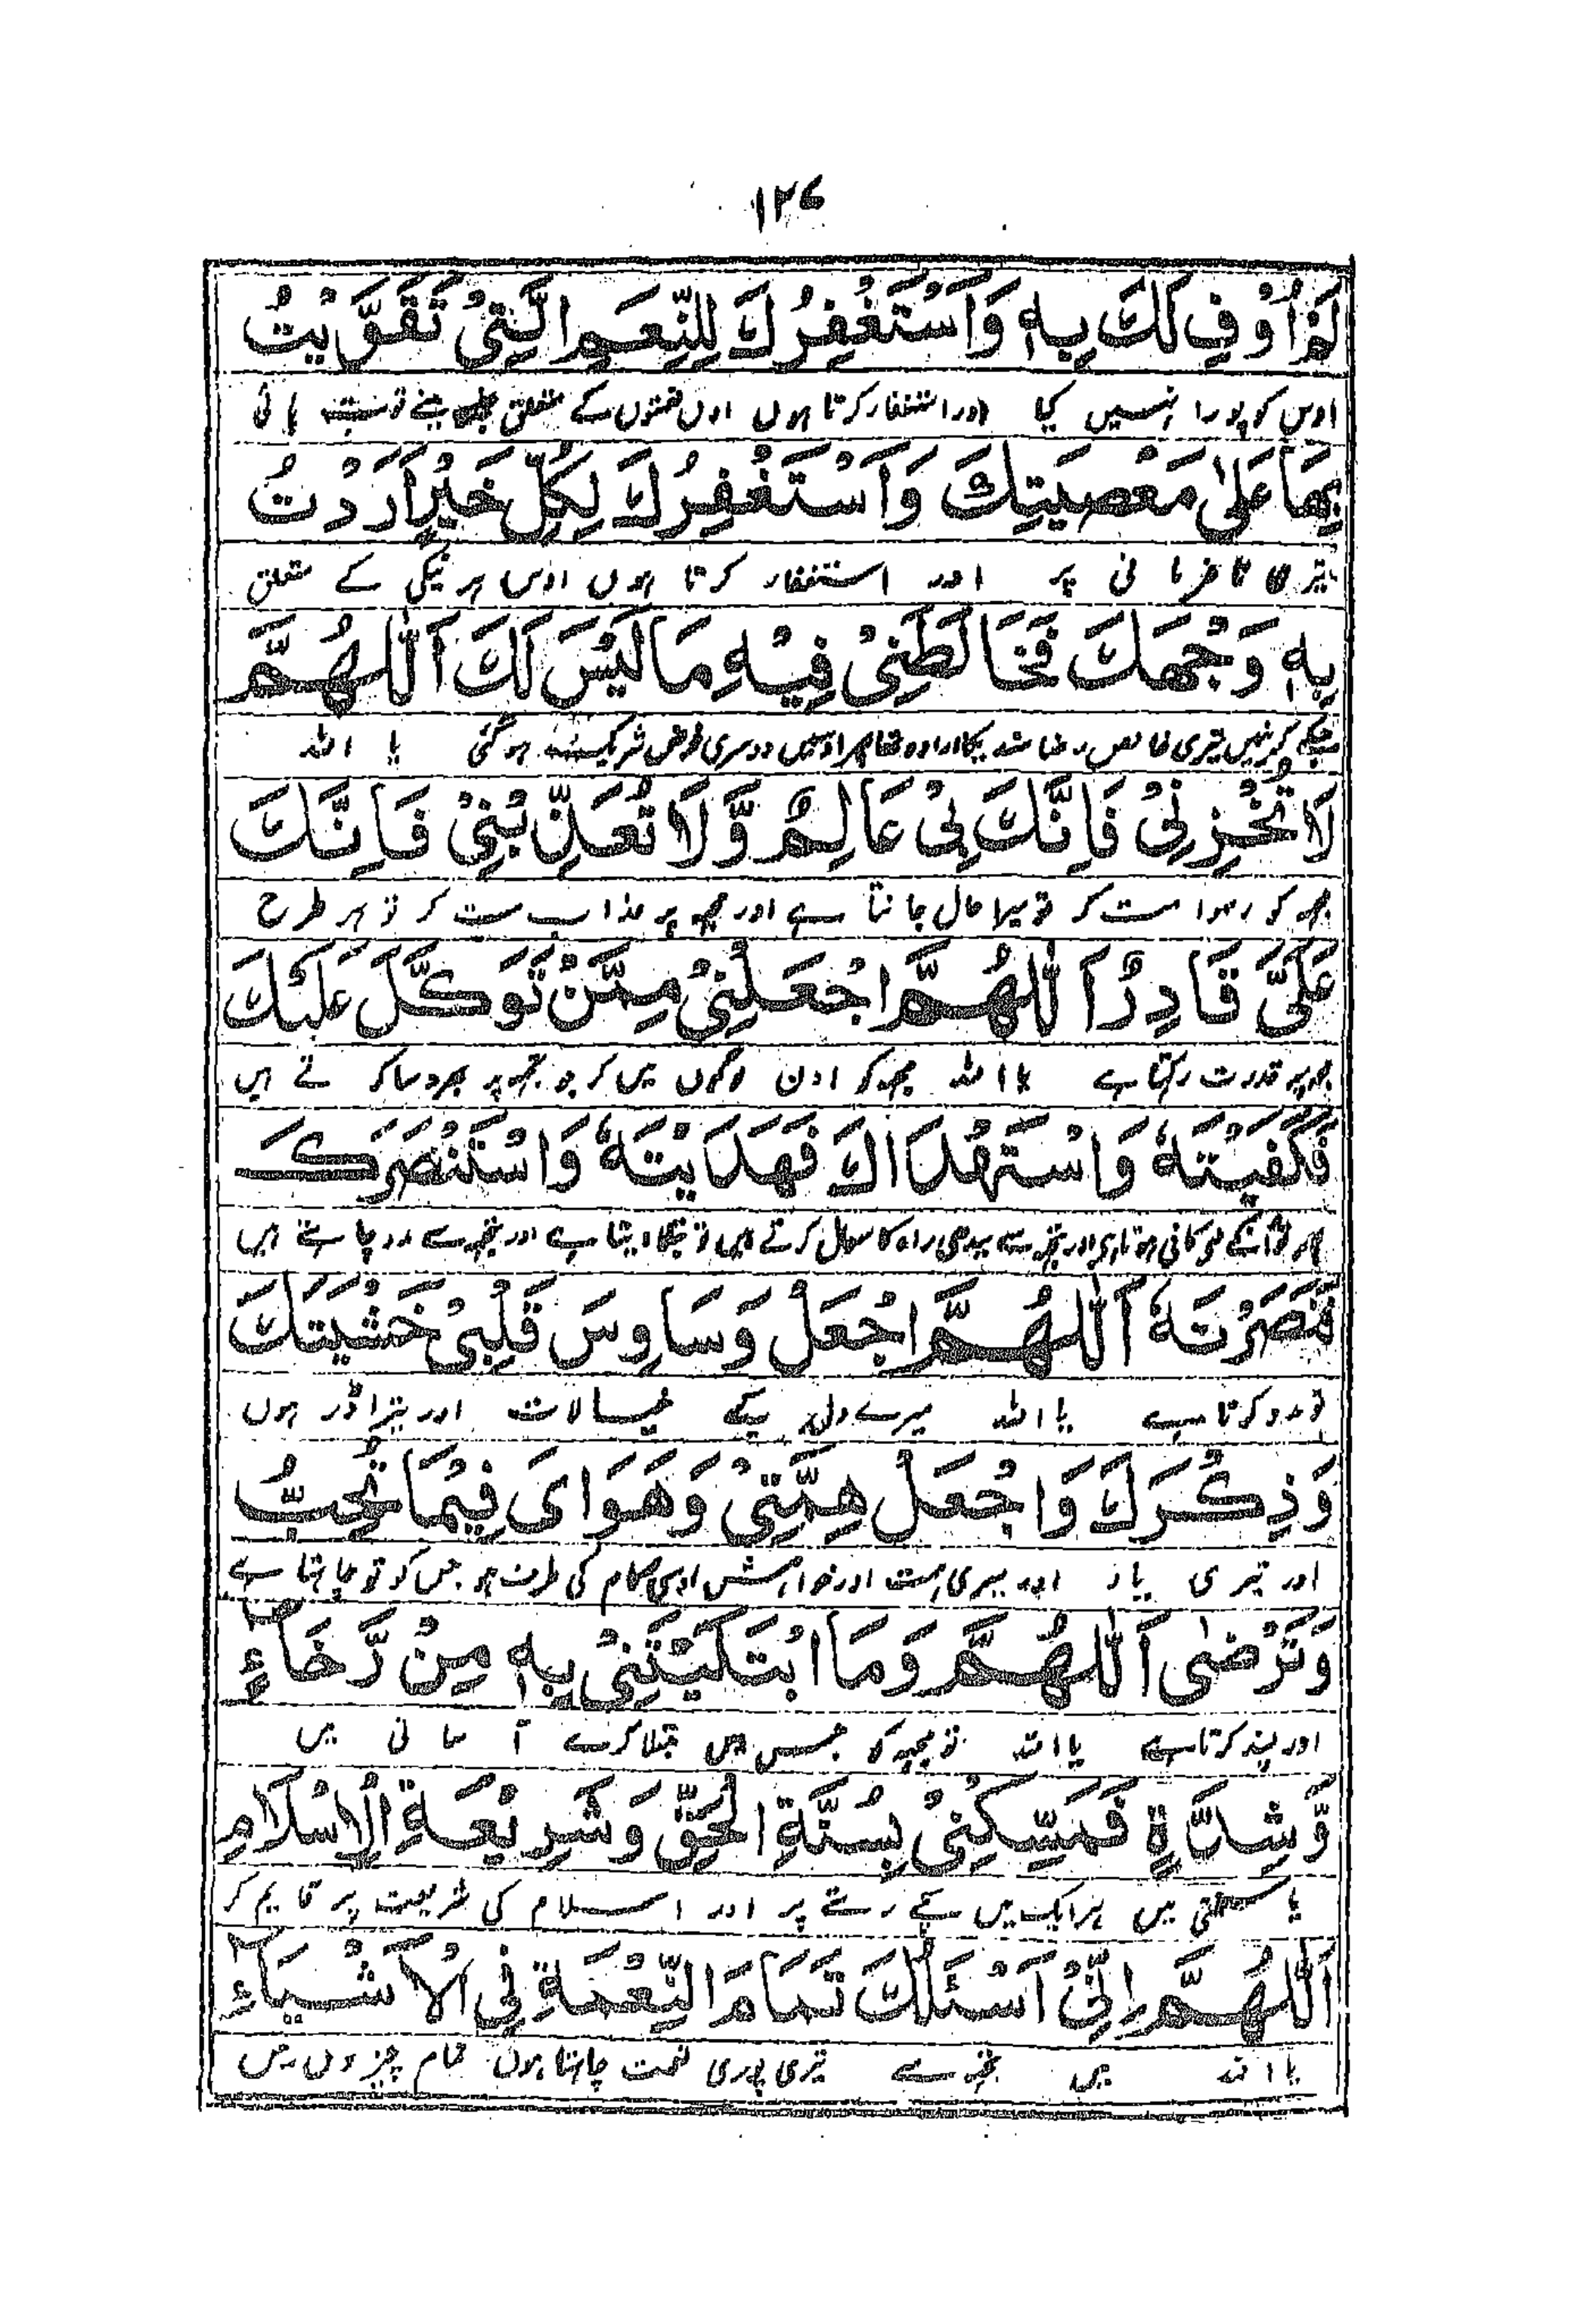 ۱۲۷
لَمْ اُوْفِ لَكَ بِهٖ وَاَسْتَغْفِرُكَ لِلنِّعَمِ الَّتِيْ تَقَوَّيْتُ
اوس کو پورا نہیں کیا اور استغفار کرتا ہوں اون نعمتوں کے متعلق جسے مینے قوت پائی
بِهَا عَلٰى مَعْصِيَتِكَ وَاَسْتَغْفِرُكَ لِكُلِّ خَيْرٍ اَرَدْتُ
تیری نا فرمانی پر اور استغفار کرتا ہوں اوس ہر نیکی کے متعلق
بِهٖ وَجْهَكَ فَخَالَطَنِيْ فِيْهِ مَالَيْسَ لَكَ اَللّٰهُمَّ
تیری خالص رضا مندیکا ارادہ تھا پھر اوسمیں دوسری غرض شریک ہو گئی یا اللہ
لَا تُخْزِنِيْ فَاِنَّكَ بِيْ عَالِمٌ وَّلَا تُعَذِّبْنِيْ فَاِنَّكَ
مجہہ کو رسوا مت کر تو میرا حال جانتا ہے اور مجہہ پر عذاب مت کر تو ہر طرح
عَلَيَّ قَادِرٌ اَللّٰهُمَّ اجْعَلْنِيْ مِمَّنْ تَوَكَّلَ عَلَيْكَ
مجہہ پر قدرت رکہتا ہے یا اللہ مجہہ کو اون لوگوں میں کر جو تجہہ پر بہروسا کرتے ہیں
فَكَفَيْتَهٗ وَاسْتَهْدَاكَ فَهَدَيْتَهٗ وَاسْتَنْصَرَكَ
کافی ہوتا ہی اور تجہہ سے سیدھی راہ کا سوال کرتے ہیں تو بتلا دیتا ہے اور تجہہ سے مدد چاہتے ہیں
فَنَصَرْتَهٗ اَللّٰهُمَّ اجْعَلْ وَسَاوِسَ قَلْبِيْ خَشْيَتَكَ
تو مدد کرتا ہے یا اللہ میرے دل کے خیالات اور تیرا ڈر ہوں
وَذِكْرَكَ وَاجْعَلْ هِمَّتِيْ وَهَوَايَ فِيْمَا تُحِبُّ
اور تیری یاد اور میری ہمت اور خواہش اوسی کام کی طرف ہو جس کو تو چاہتا ہے
وَتَرْضٰى اَللّٰهُمَّ وَمَا ابْتَلَيْتَنِيْ بِهٖ مِنْ رَّخَآءٍ
اور پسند کرتا ہے یا اللہ تو مجہہ کو جس میں مبتلا کرے آسانی میں
وَّشِدَّةٍ فَمَسِّكْنِيْ بِسُنَّةِ الْحَقِّ وَشَرِيْعَةِ الْاِسْلَامِ
یا سختی میں ہر ایک میں سچے رستے پر اور اسلام کی شریعت پر قایم کر
اَللّٰهُمَّ اِنِّيْ اَسْئَلُكَ تَمَامَ النِّعْمَةِ فِي الْاَشْيَآءِ
یا اللہ میں تجہہ سے تیری پوری نعمت چاہتا ہوں تمام چیزوں میں